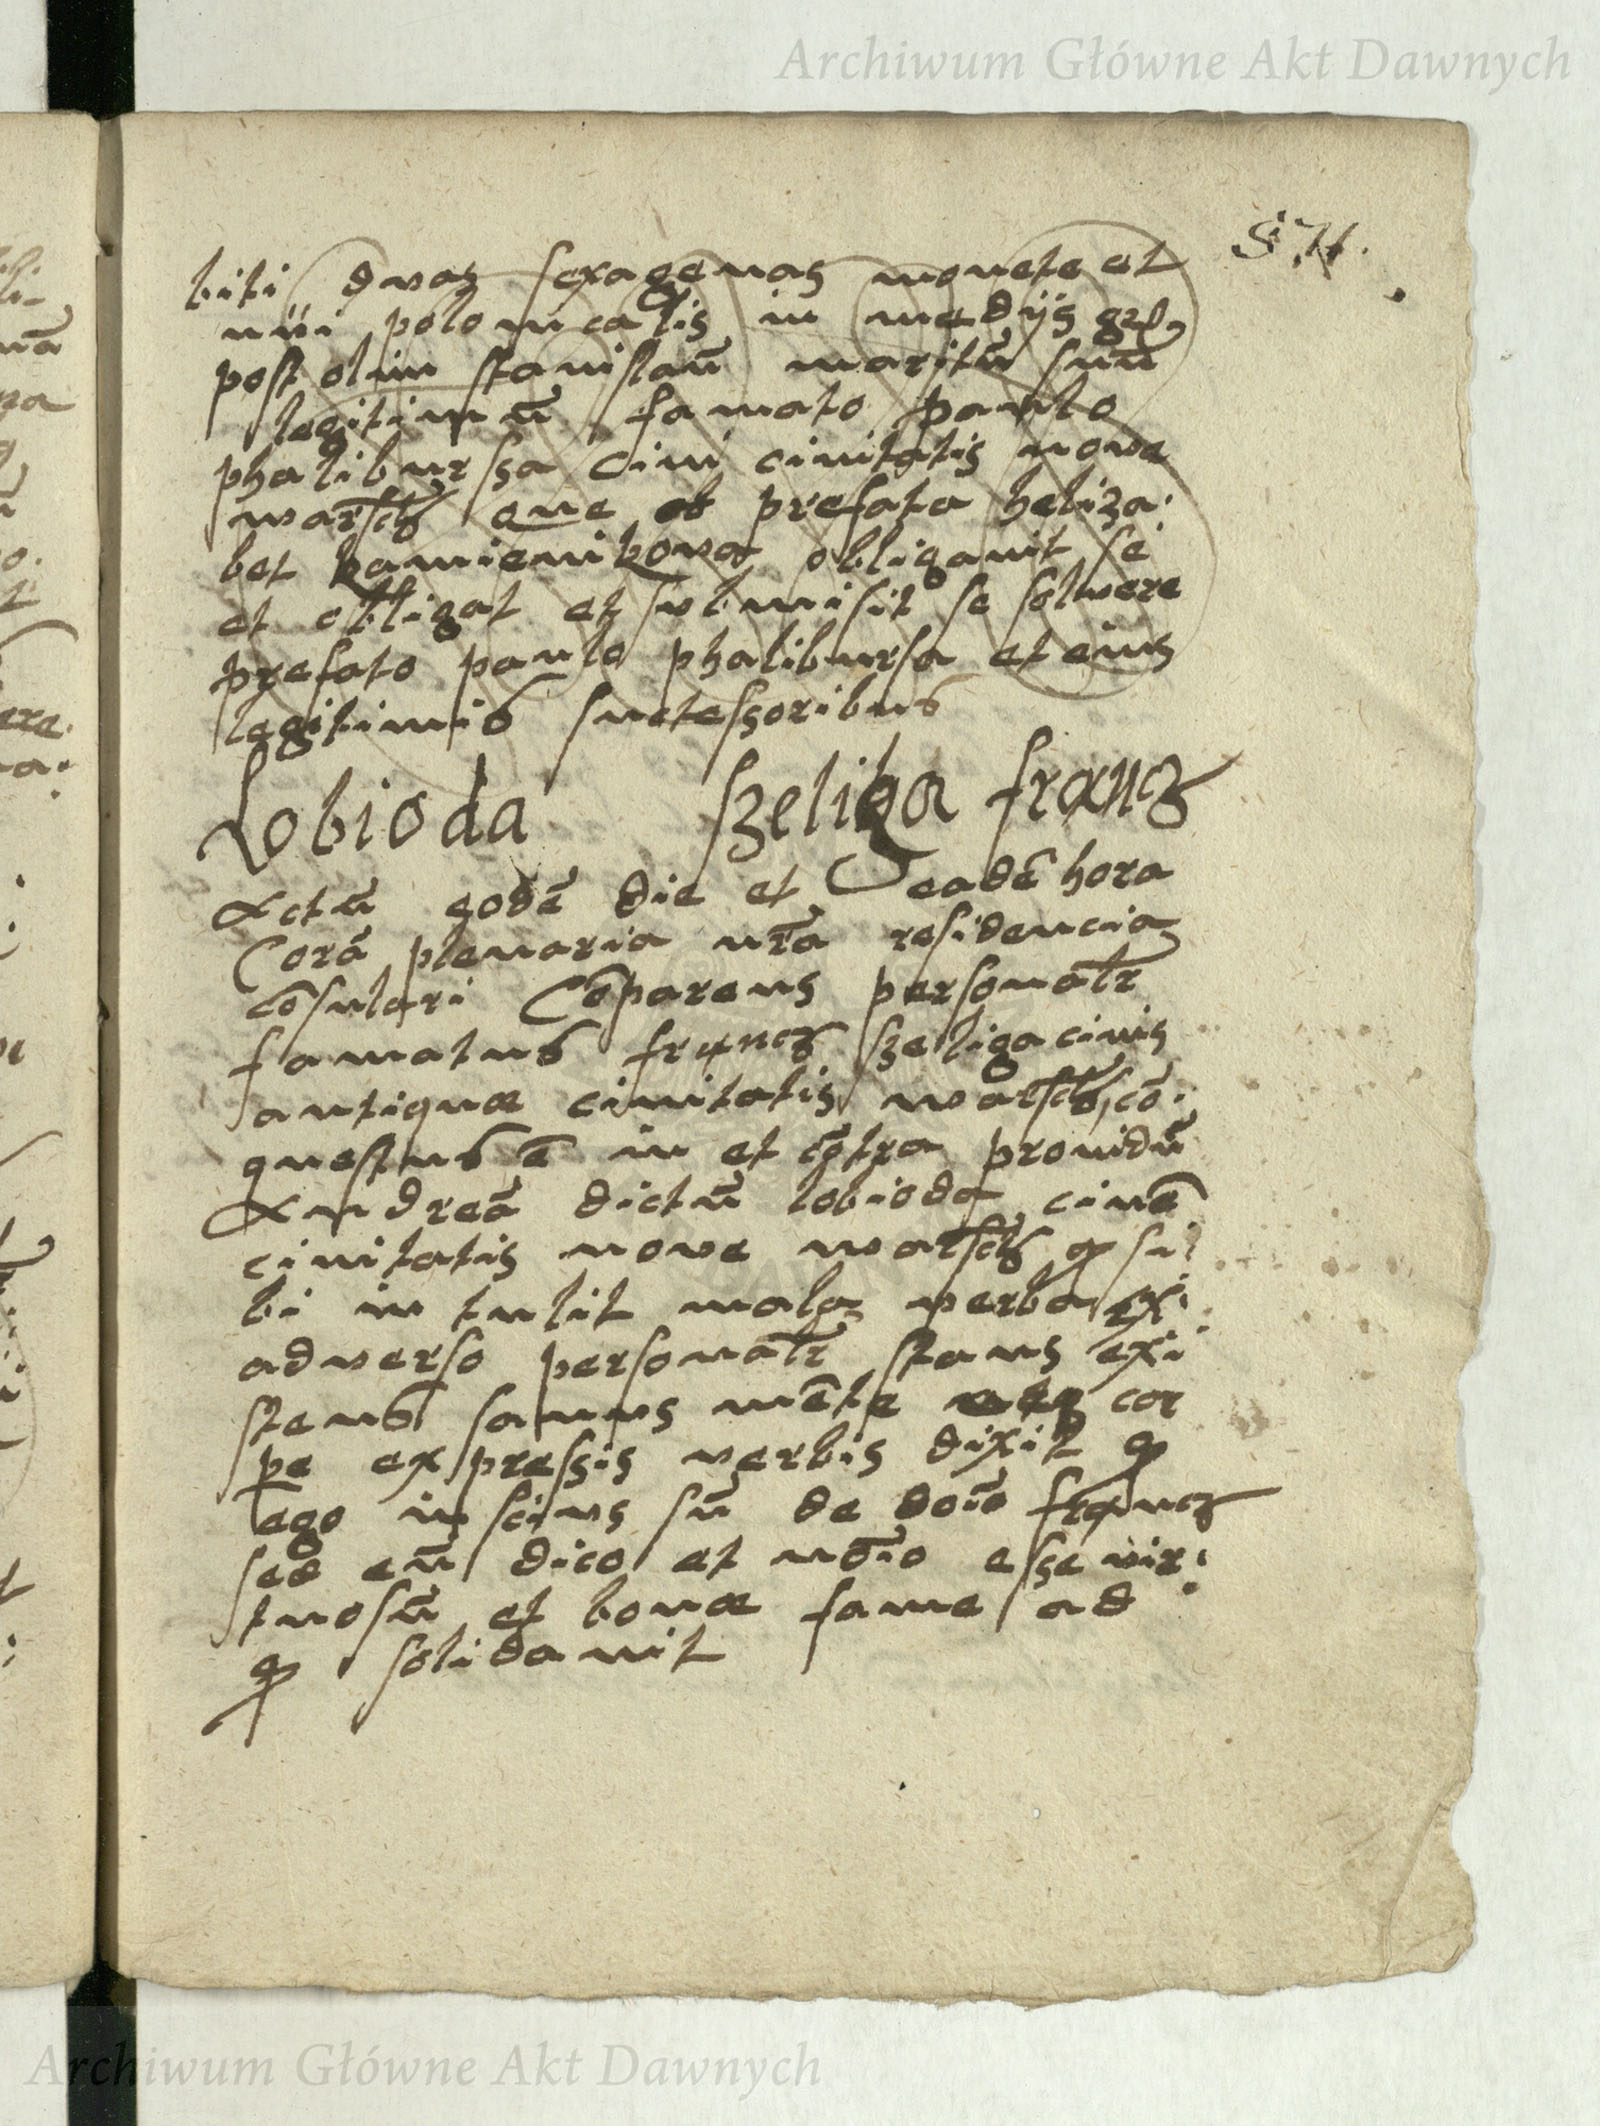 Archiwum Główne Akt Dawnych
biti duas sexagenas monete et
nūi polonicalis in medijs grs
post olim stanislaū maritū suū
legitimū famato paulo
phaliburssa civi civitatis nove
warsch que ob prefata heliza
bet kamienikova obligavit se
et obligat et submisit se solvere
prefato paulo phalibursa et eius
legitimis suctessoribus
Lobioda szeliga francz
Actū eodē die et eadē hora
Corā plenaria nrā residencia
cōsulari Cōparens personalr
famatus francz szeliga civis
antiquæ civitatis warsch, cō
questus ē in et cōtra providū
Andreā dictū lobioda civē
civitatis nove warsch q si
bi in tulit mala verba
adverso personalr stans exi
stens sanus mēte cor
pe expressis verbis dixit q
ego inscius sū de doīo francz
sed eū dico et nōīo esse vir
tuosū et bonæ fame ad
q solidavit
Archiwum Główne Akt Dawnych